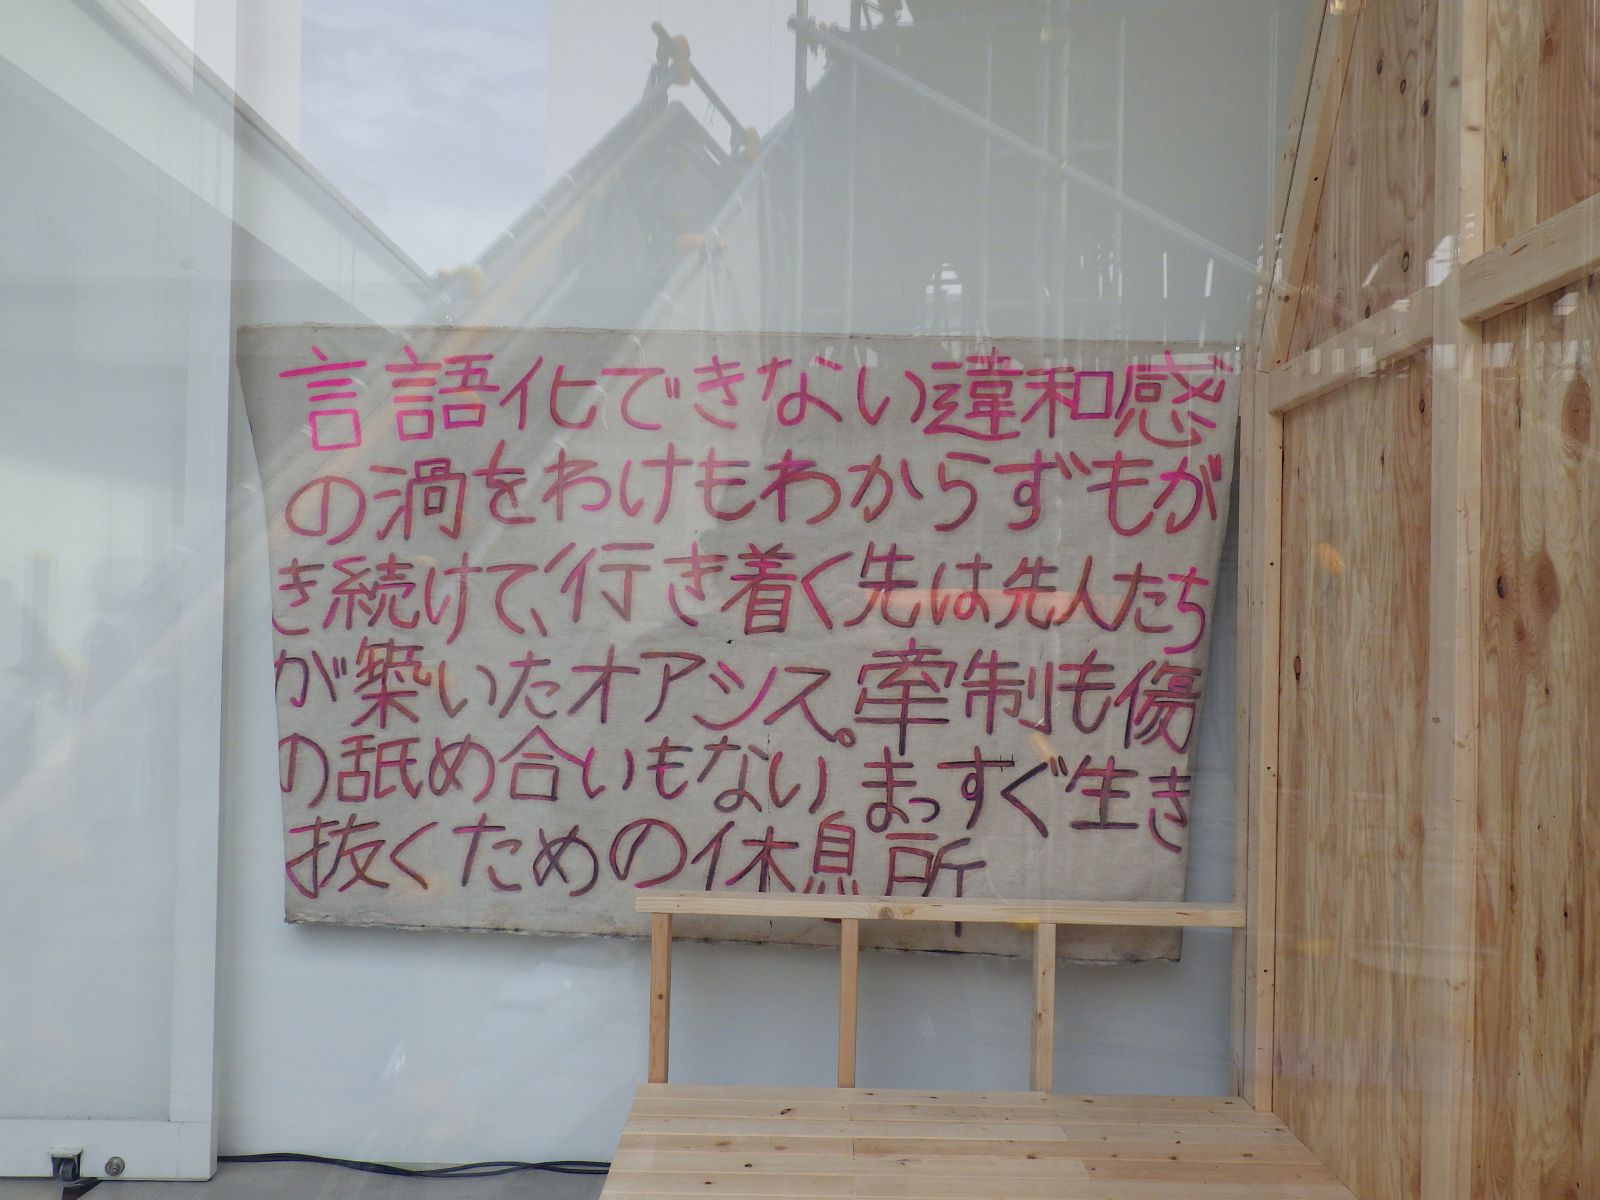 言語化できない違和感
の渦をわけもわからずもが
き続けて、行き着く先は先人たち
が築いたオアシス。牽制も傷
の舐め合いもない、まっすぐ生き
抜くための休息所